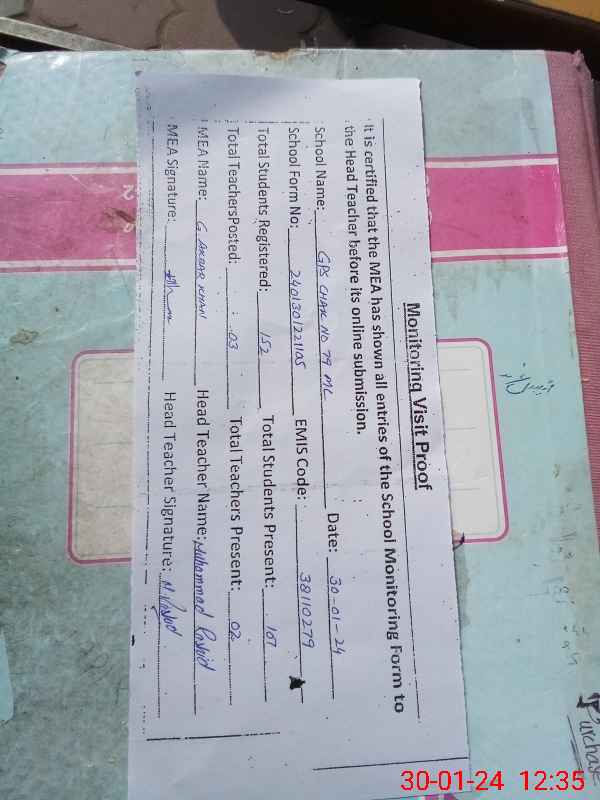 Monitoring Visit Proof
It is certified that the MEA has shown all entries of the School Monitoring Form to
the Head Teacher before its online submission.
School Name: GPS CHAK NO 79 ML Date: 30-01-24
School Form No: 2401301221105 EMIS Code: 38110279
Total Students Registered: 152 Total Students Present: 107
Total TeachersPosted: 03 Total Teachers Present: 02
MEA Name: G. AKBAR KHAN Head Teacher Name: Muhammad Rashid
MEA Signature: Head Teacher Signature: M Rashid
Purchase
30-01-24 12:35